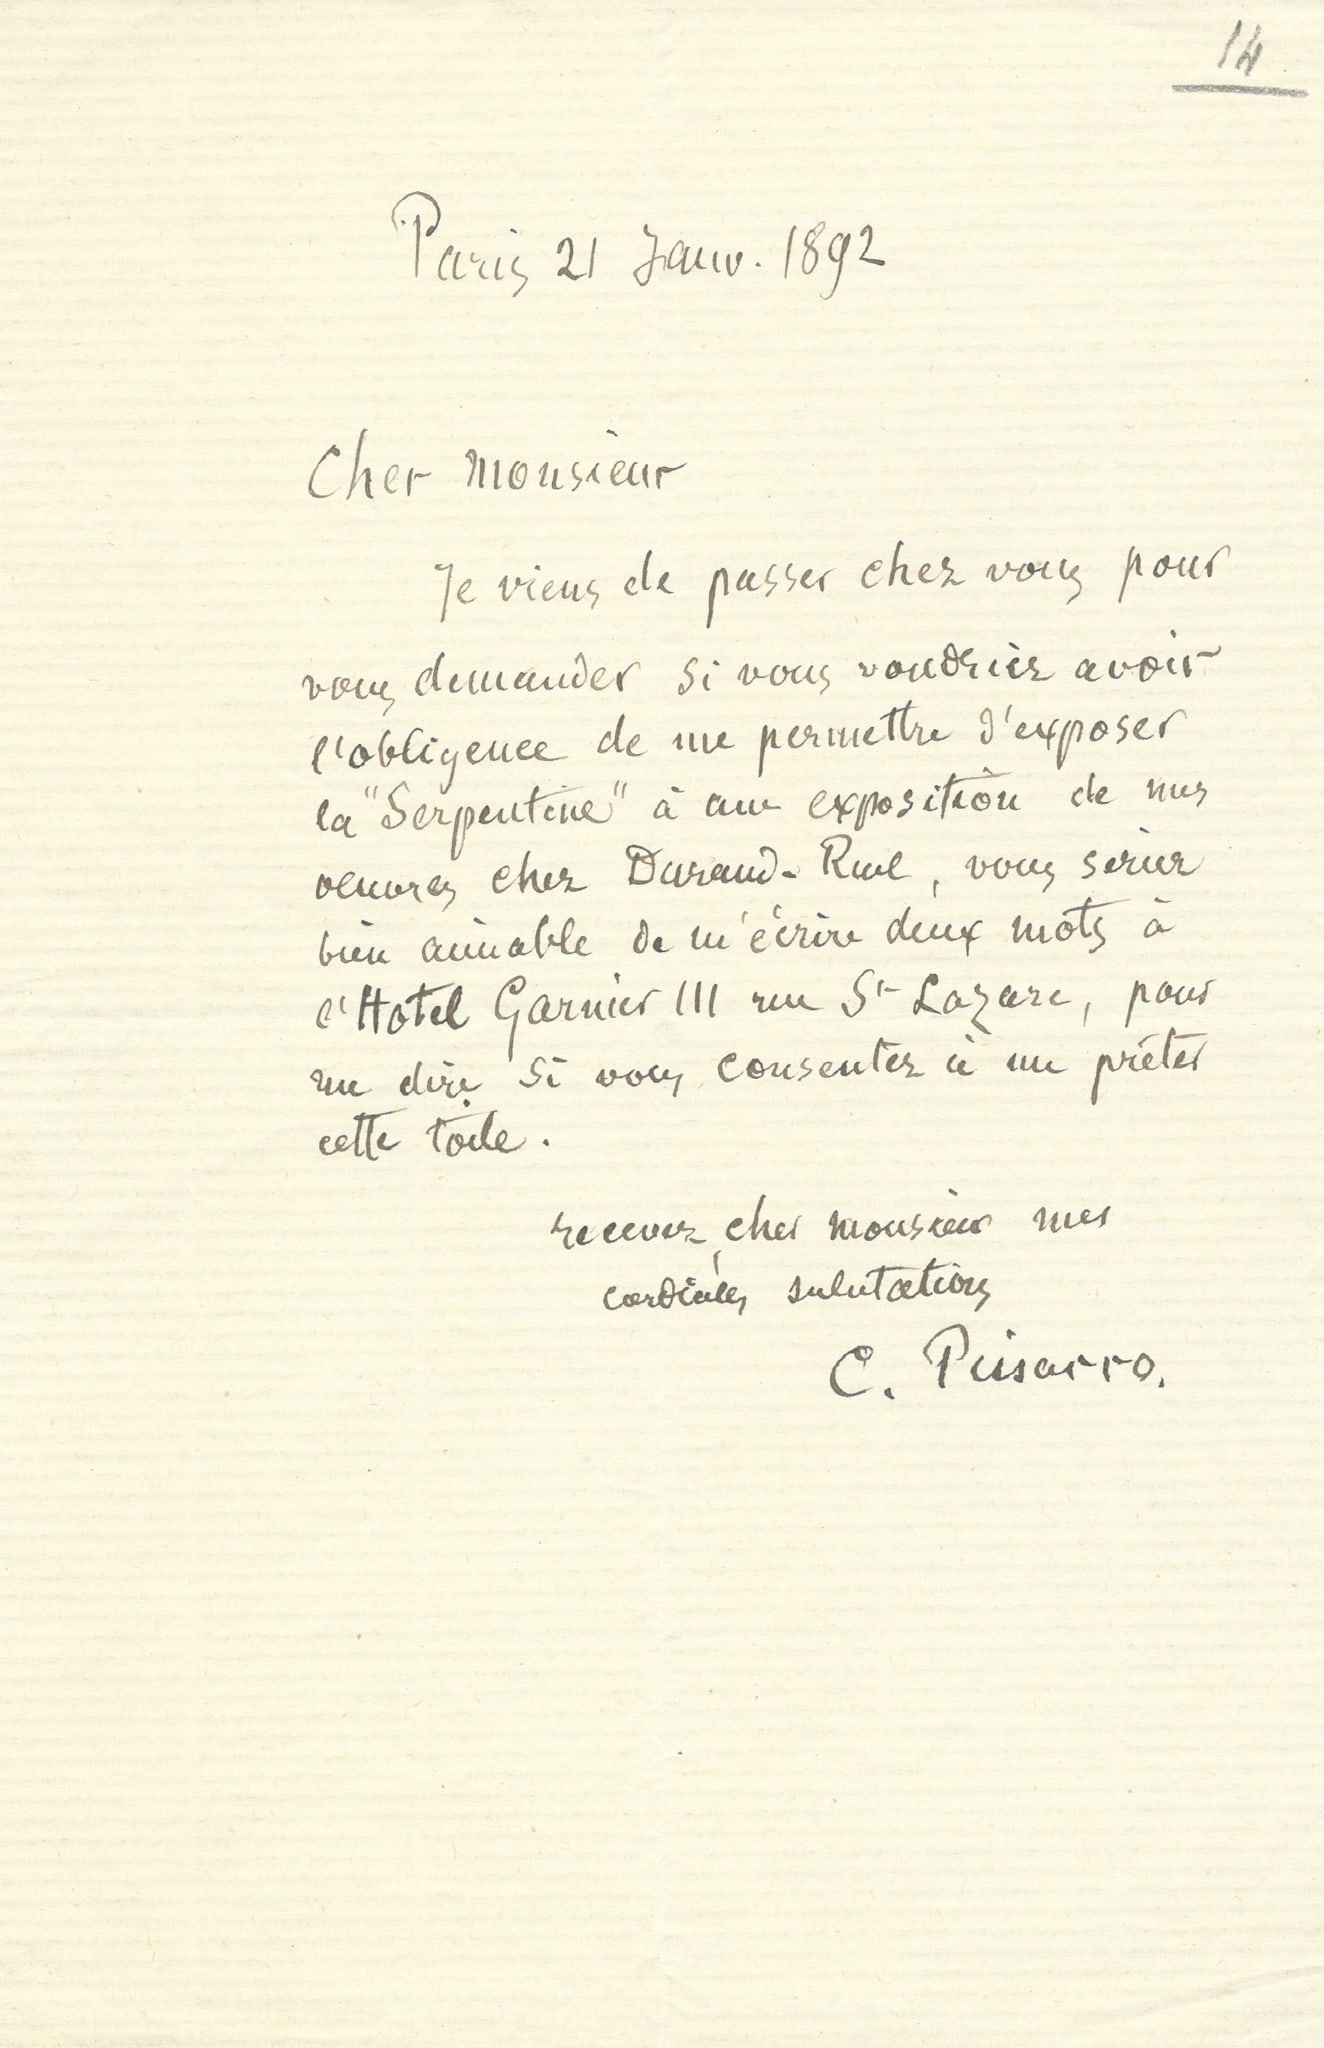 14
Paris 21 Janv. 1892
Cher Monsieur
Je viens de passer chez vous pour
vous demander si vous voudriez avoir
l'obligence de me permettre d'exposer
la "Serpentine" à une exposition de mes
oeuvres chez Durand-Ruel, vous seriez
bien aimable de m'écrire deux mots à
l'Hotel Garnier 111 rue St Lazare, pour
me dire si vous consentez à me prêter
cette toile.
recevez, cher monsieur mes
cordiales salutations
C. Pissarro.